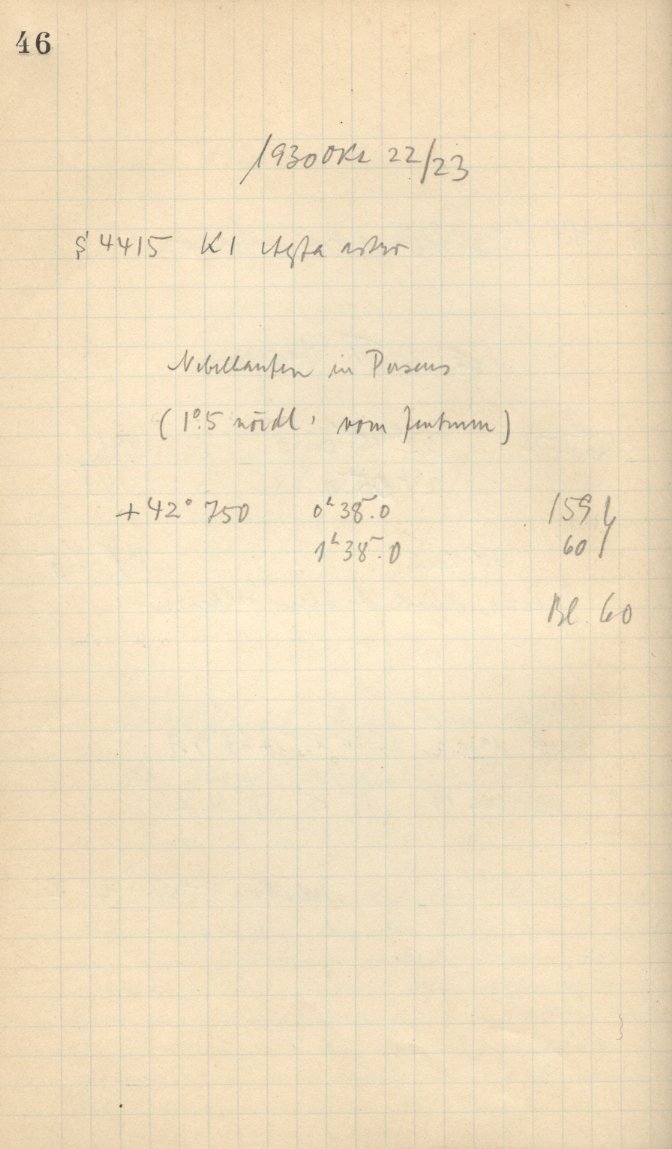 46
1930 Okt 22/23
4415 K1 Agfa astro
Nebelhaufen in Perseus
(1°.5 nördl. vom Zentrum)
+42° 750 0ʰ38ᵐ.0 159
1ʰ38ᵐ.0 60
Bl. 60